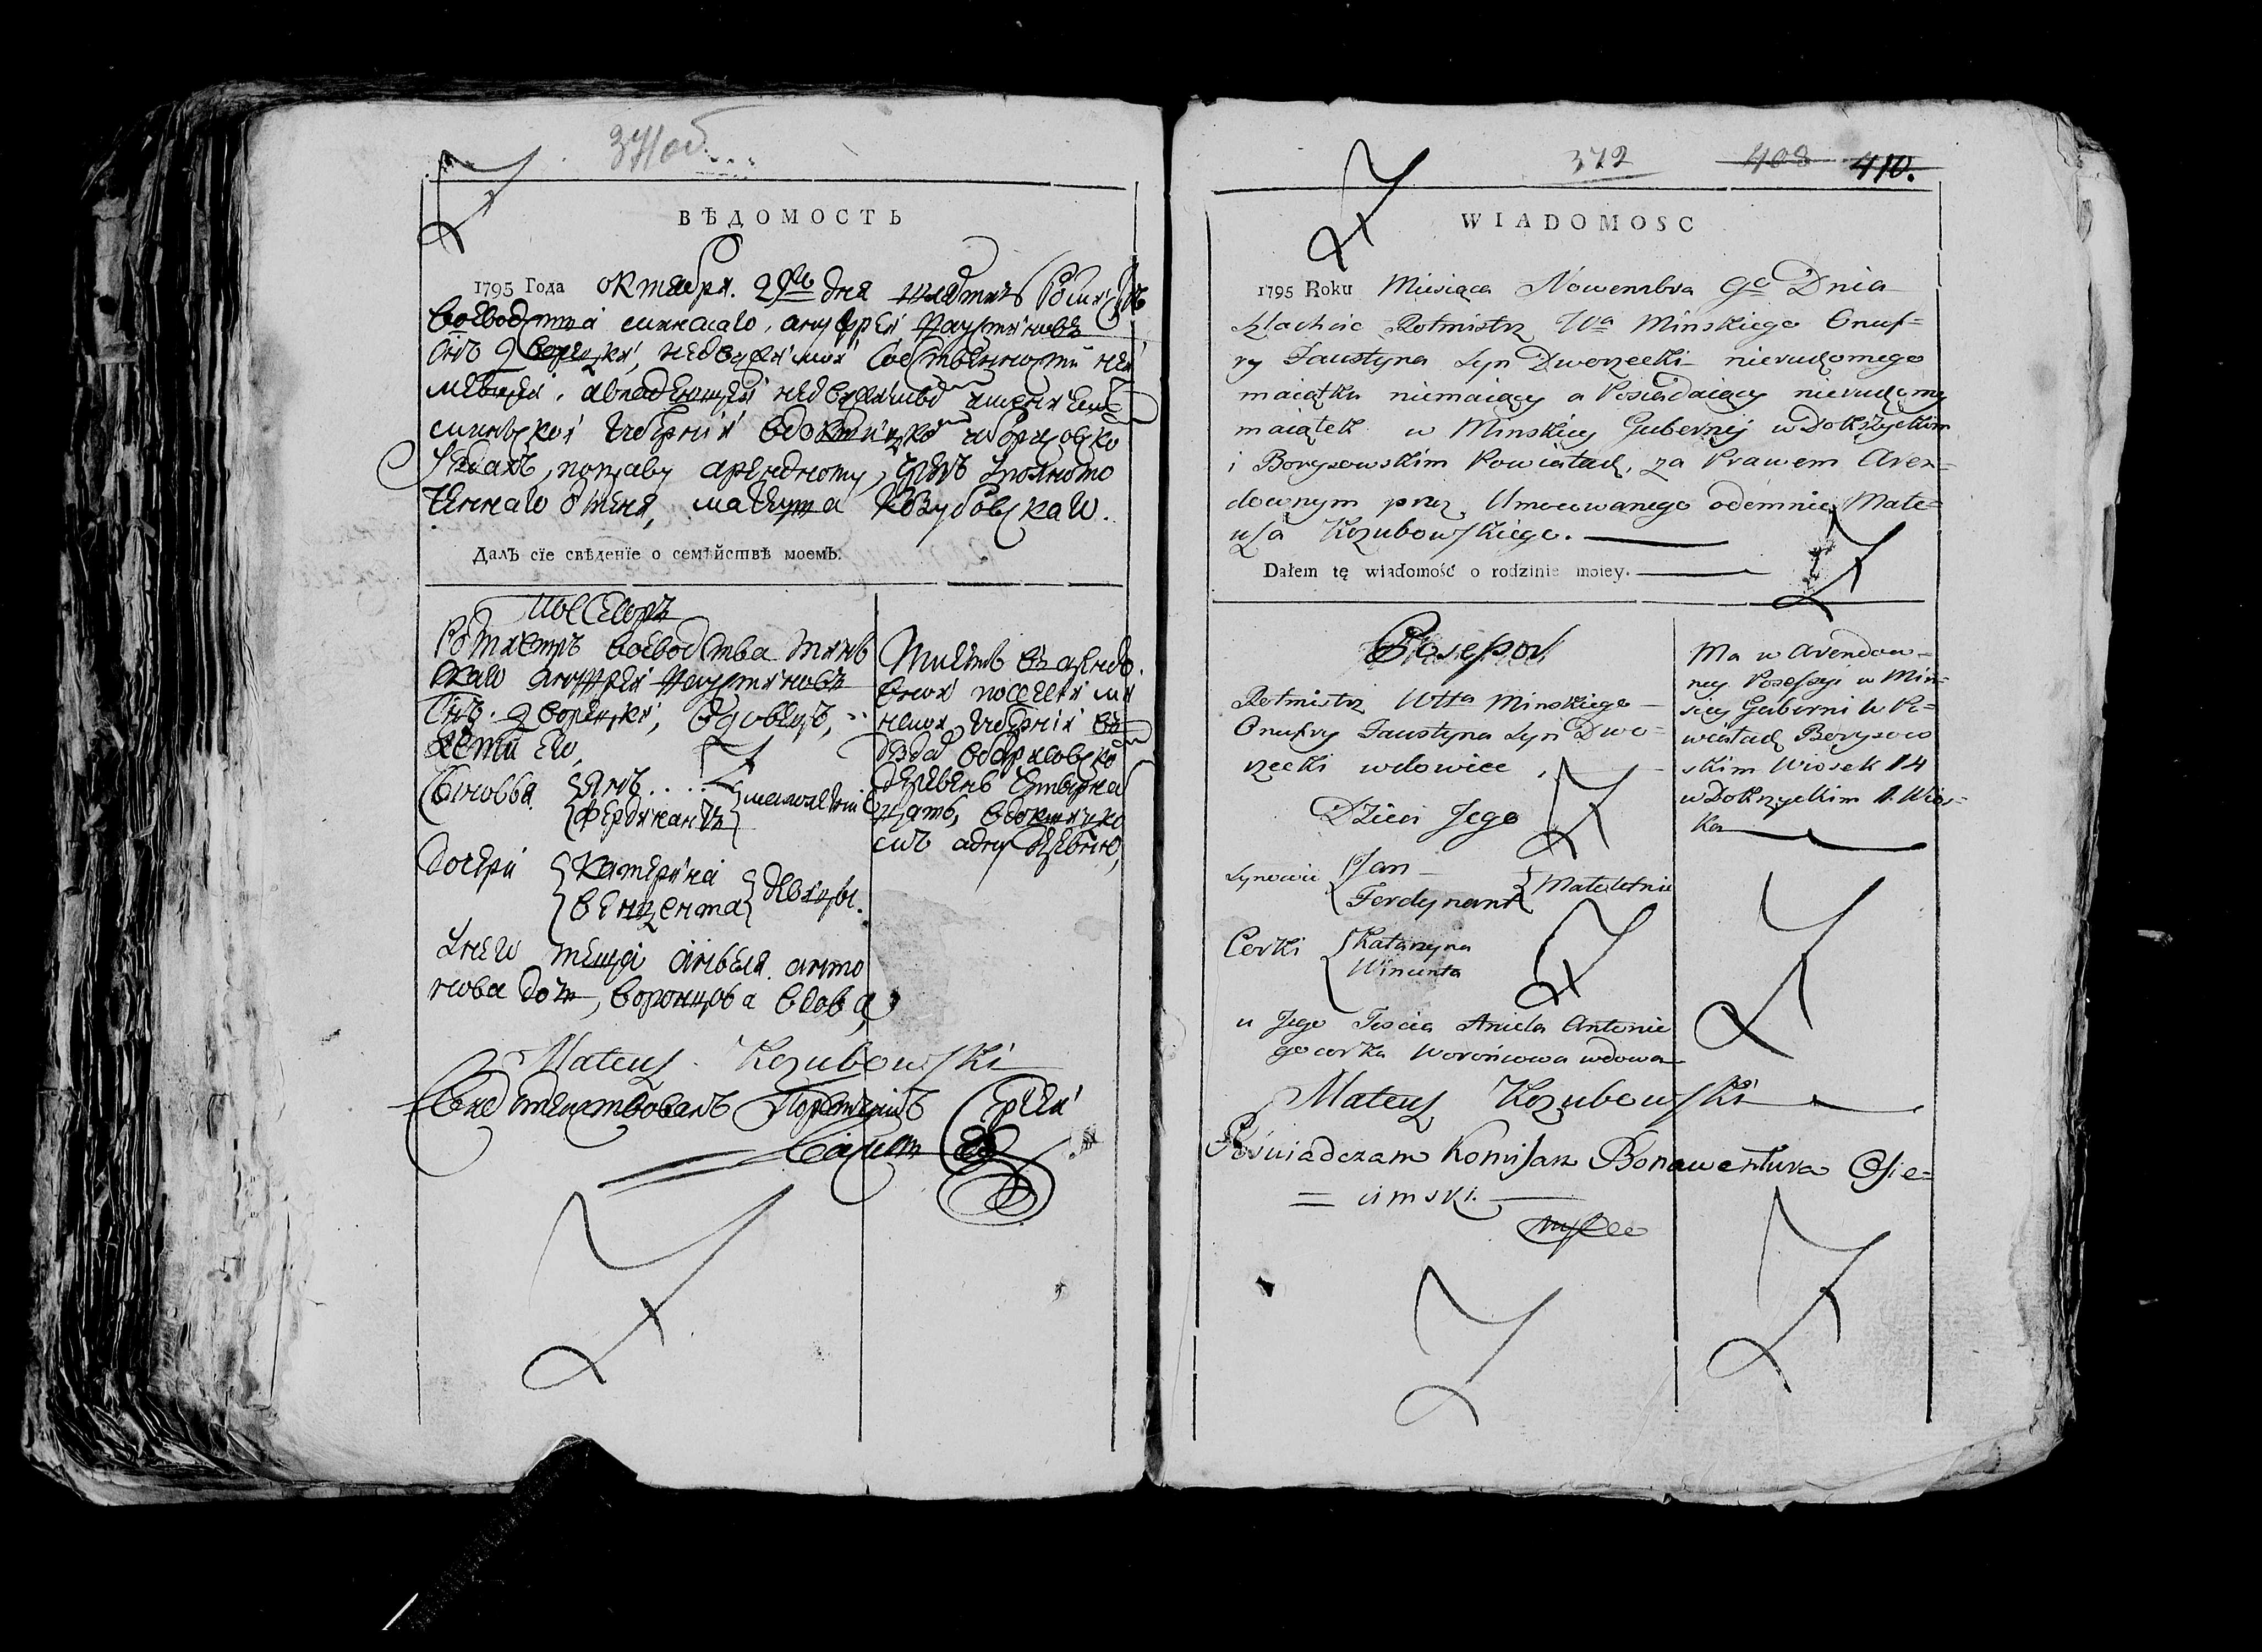 371об.
ВѢДОМОСТЬ
1795 Года октября 29го дня шляхтичъ Ротмистръ
воеводства минскаго, ануфрей Фаустиновъ
Сынъ Дворецки, недвижимой собственности не
имеющей, авладеющей недвижимымъ имениемъ
минской губернии вдокшицкомъ иборисовско
уездахъ, по праву арендному, чрезъ уполномо
ченнаго отменя, матеуша козубовскаго.
Далъ сїе свѣденїе о семѣйствѣ моемъ.
Посесоръ
Ротмистръ воеводства минс
скаго ануфрей Фаустиновъ
Сынъ Дворецки, вдовецъ,
Дети его,
Сыновья {Янъ.....
{Фердинантъ} малолетнии
Дочери {Катерина
{Венцента} девицы.
Унего теща анеля антоно
нова дочь, воронцова вдова
Имеетъ въ арендо
вной посесии ми
нской губернии въ
уездах вборисовско
деревень четырна
цать, вдокшицко
мъ адну деревню,
Mateusz Kozubowski
Свидетельствовалъ Порутчикъ Сергей
WIADOMOSC
372 408 410.
1795 Roku Miesiąca Nowembra 9o Dnia
Szlachcic Rotmistrz Wa Minskiego Onuf=
ry Faustyna Syn Dworzecki nieruchomego
maiątku niemaiący a Posiadaiący nieruchomy
maiątek w Minskiey Gubernij w Dokszyckim
i Borysowskim Powiatach, za Prawem Aren=
downym przez Umocowanego odemnie Mate=
usza Kozubowskiego.
Dałem tę wiadomość o rodzinie moiey.
Possessor
Rotmistrz Wttа Minskiego
Onufry Faustyna Syn Dwo=
rzecki wdowiec,
Dzieci Jego
Synowie {Jan
{Ferdynant} Małoletnie
Corki {Katarzyna
{Wincenta
u Jego Tescia Aniela Antonie
go corkaWorońcowa wdowa
Ma w arendow=
ney Possessyi w Min=
skiey Guberni w Po=
wiatach Borysow
skim Wiosek 14
w Dokszyckim 1. Wios=
ka
Mateusz Kozubowski
Poświadczam Komisarz Bonawentura Osie=
= cimski.